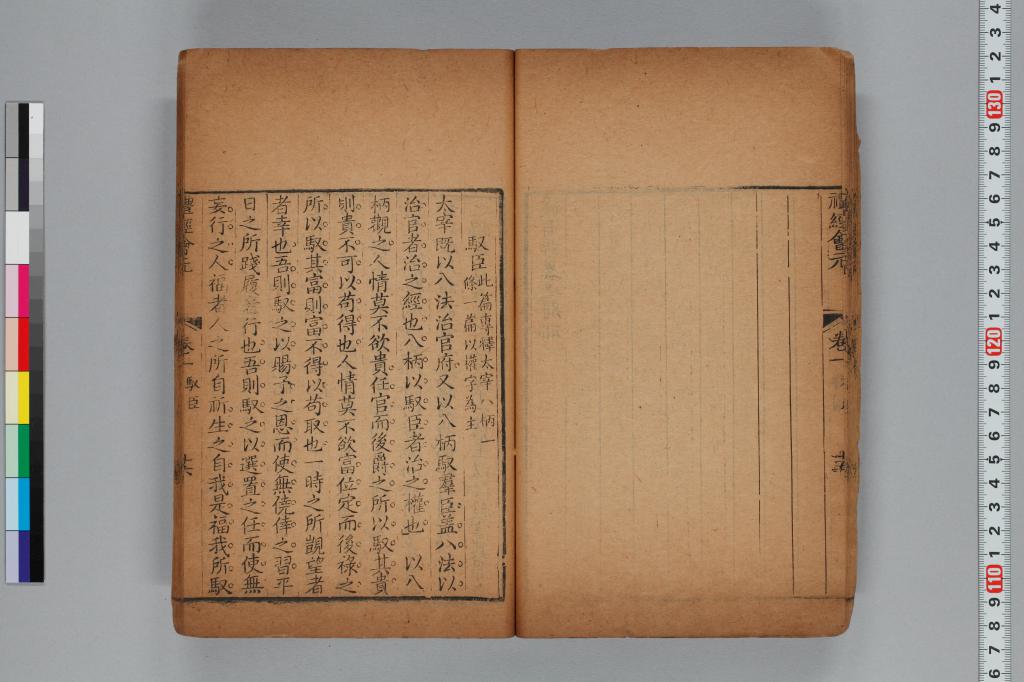 禮經會元
卷一
馭臣此篇專釋太宰八柄一
條一篇以權字為主
太宰既以八法治官府又以八柄馭羣臣盖八法以
治官者治之經也八柄以馭臣者治之權也 以八
柄觀之人情莫不欲貴任官而後爵之所以馭其貴
則貴不可以苟得也人情莫不欲富位定而後祿之
所以馭其富則富不得以苟取也一時之所覬望者
者幸也吾則馭之以賜予之恩而使無僥倖之習平
日之所踐履者行也吾則馭之以選置之任而使無
妄行之人福者人之所自祈生之自我是福我所馭
禮經會元
卷一
馭臣
十六